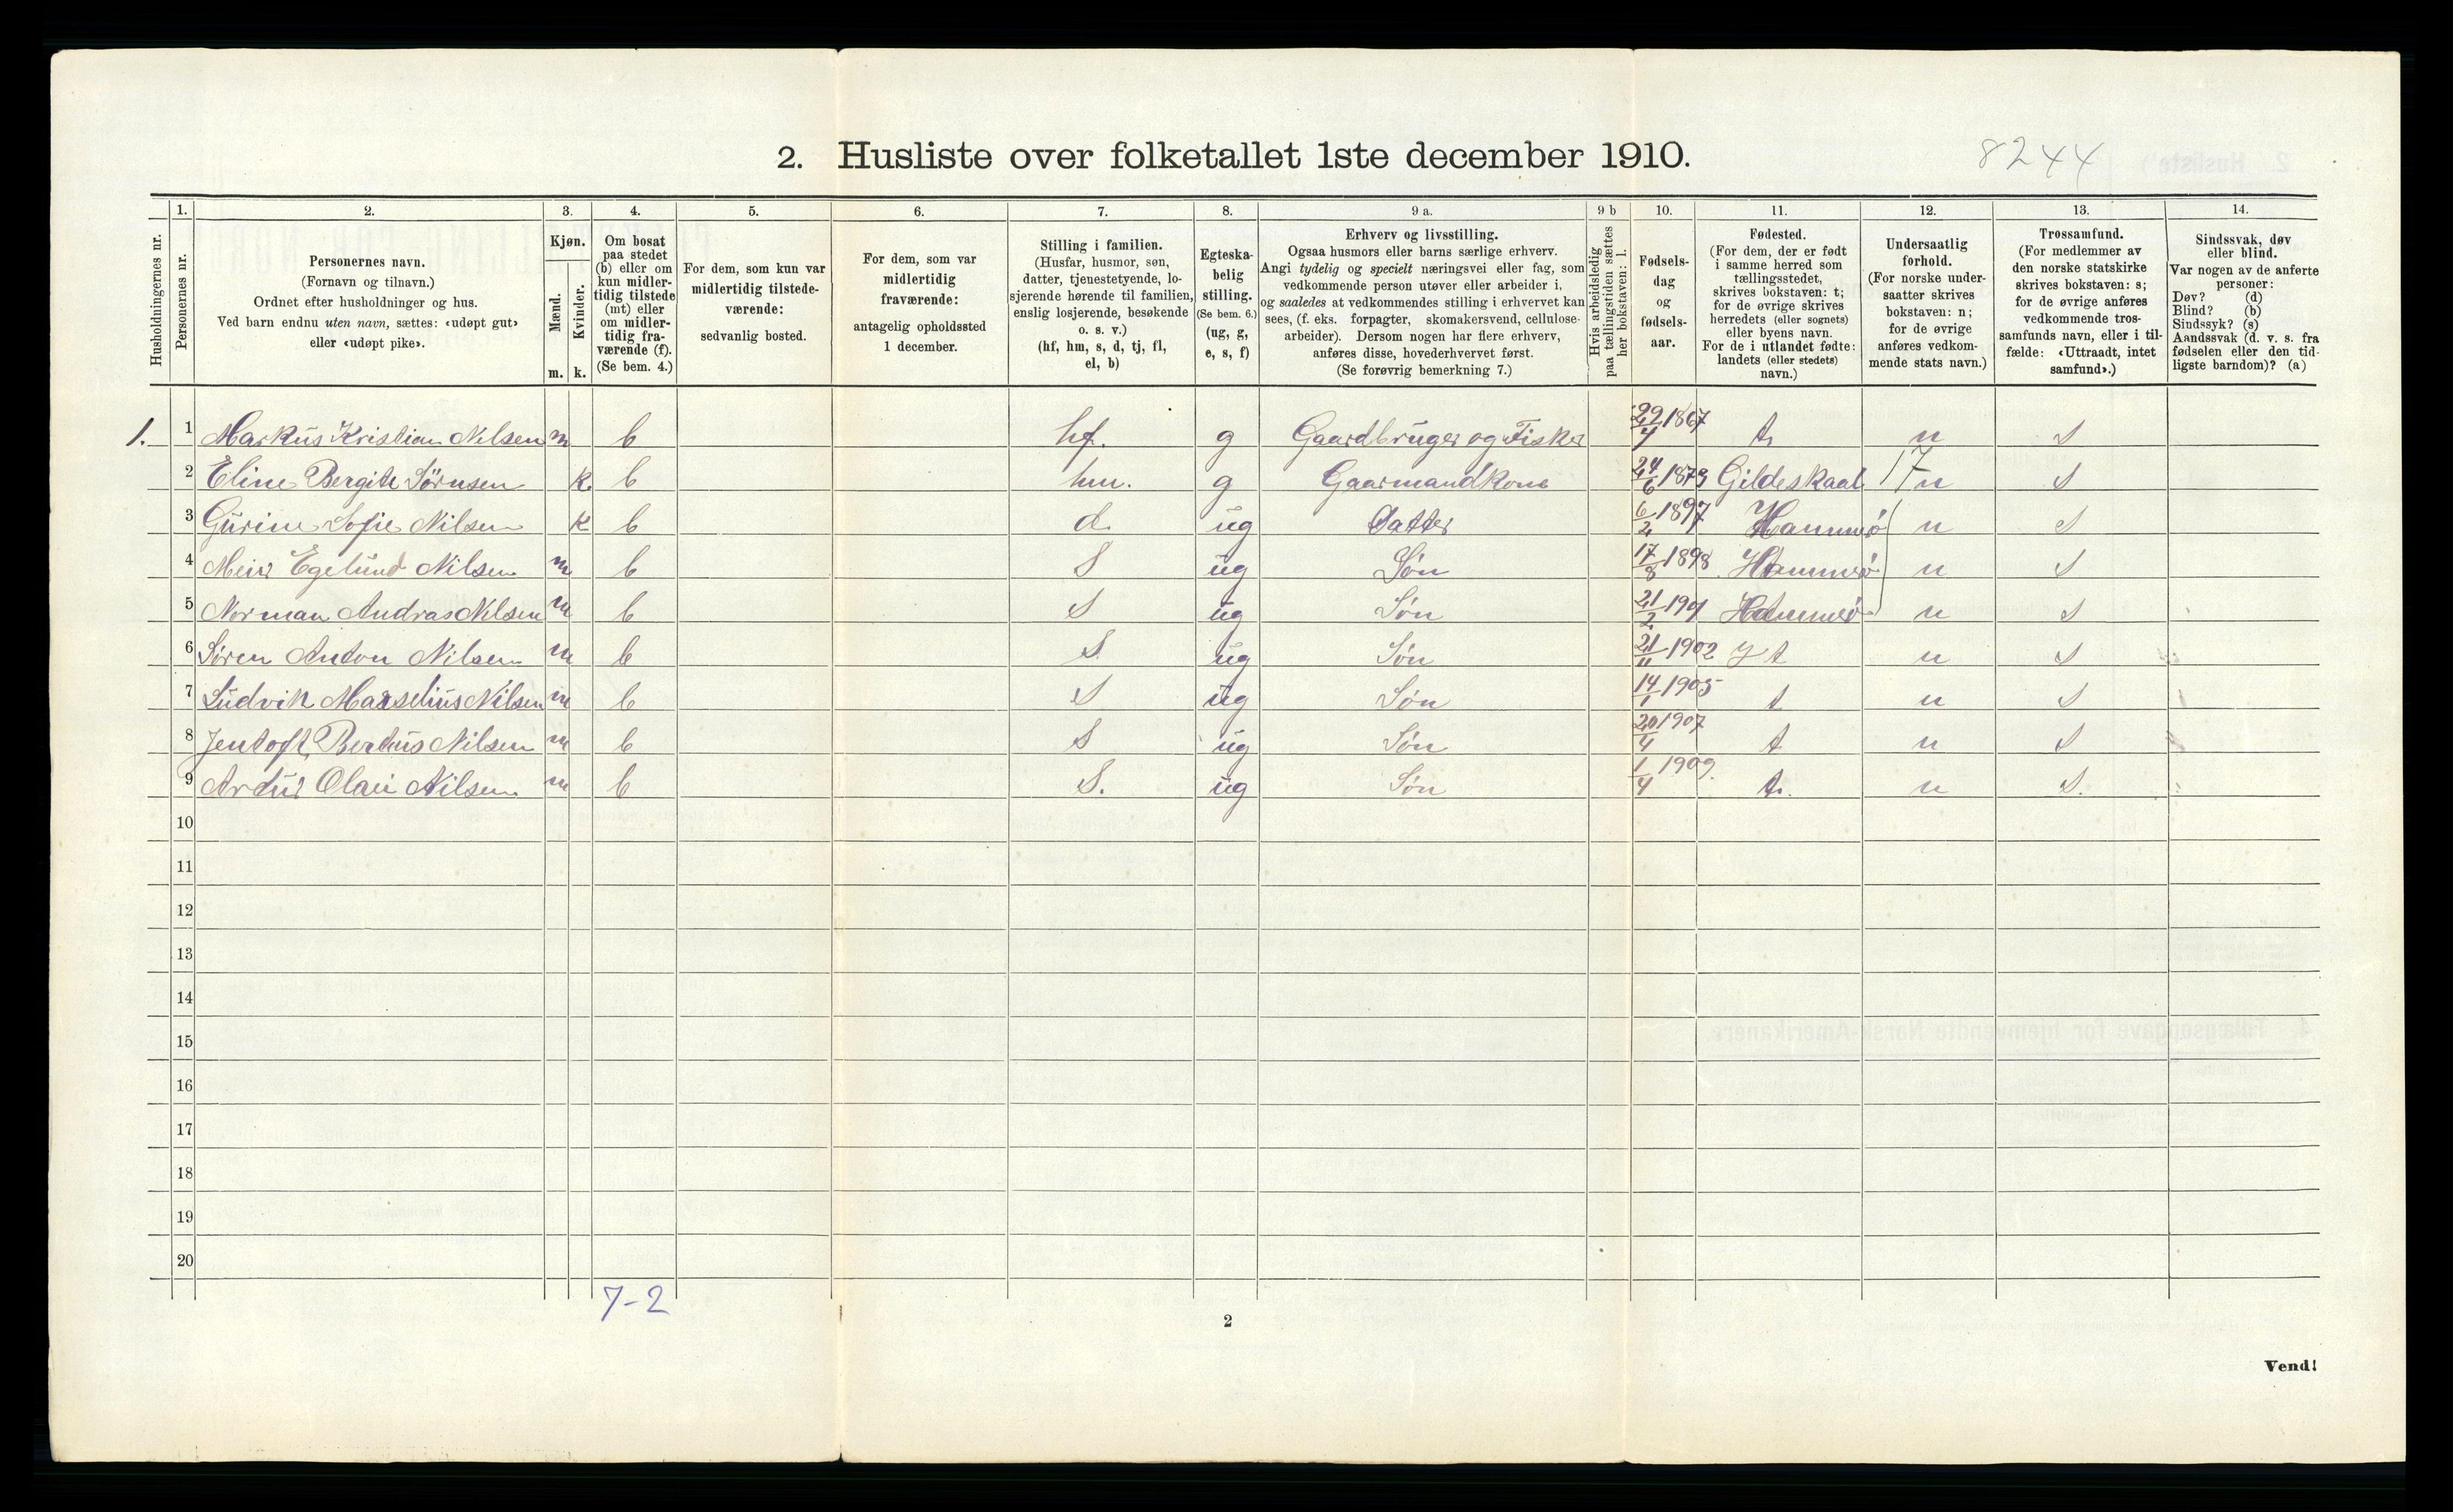 2. Husliste over folketallet 1ste december 1910.
8244
1. 2. 3. 4. 5. 6. 7. 8. 9 a. 9 b 10. 11. 12. 13. 14.
Husholdningernes nr.
Personernes nr.
Personernes navn.
(Fornavn og tilnavn.)
Ordnet efter husholdninger og hus.
Ved barn endnu uten navn, sættes: «udøpt gut»
eller «udøpt pike».
Kjøn.
Mænd.
Kvinder.
m. k.
Om bosat
paa stedet
(b) eller om
kun midler-
tidig tilstede
(mt) eller
om midler-
tidig fra-
værende (f).
(Se bem. 4.)
For dem, som kun var
midlertidig tilstede-
værende:
sedvanlig bosted.
For dem, som var
midlertidig
fraværende:
antagelig opholdssted
1 december.
Stilling i familien.
(Husfar, husmor, søn,
datter, tjenestetyende, lo-
sjerende hørende til familien,
enslig losjerende, besøkende
o. s. v.)
(hf, hm, s, d, tj, fl,
el, b)
Egteska-
belig
stilling.
(Se bem. 6.)
(ug, g,
e, s, f)
Erhverv og livsstilling.
Ogsaa husmors eller barns særlige erhverv.
Angi tydelig og specielt næringsvei eller fag, som
vedkommende person utøver eller arbeider i,
og saaledes at vedkommendes stilling i erhvervet kan
sees, (f. eks. forpagter, skomakersvend, cellulose-
arbeider). Dersom nogen har flere erhverv,
anføres disse, hovederhvervet først.
(Se forøvrig bemerkning 7.)
Hvis arbeidsledig
paa tællingstiden sættes
her bokstaven: l.
Fødsels-
dag
og
fødsels-
aar.
Fødested.
(For dem, der er født
i samme herred som
tællingsstedet,
skrives bokstaven: t;
for de øvrige skrives
herredets (eller sognets)
eller byens navn.
For de i utlandet fødte:
landets (eller stedets)
navn.)
Undersaatlig
forhold.
(For norske under-
saatter skrives
bokstaven: n;
for de øvrige
anføres vedkom-
mende stats navn.)
Trossamfund.
(For medlemmer av
den norske statskirke
skrives bokstaven: s;
for de øvrige anføres
vedkommende tros-
samfunds navn, eller i til-
fælde: «Uttraadt, intet
samfund».)
Sindssvak, døv
eller blind.
Var nogen av de anførte
personer:
Døv? (d)
Blind? (b)
Sindssyk? (s)
Aandssvak (d. v. s. fra
fødselen eller den tid-
ligste barndom)? (a)
1. 1 Markus Kristian Nilsen m b hf. g Gaardbruger og Fisker 22/4 1867 t n s
2 Eline Bergite Sørnsen k b hm. g Gaarmandkone 24/6 1873 Gildeskaal 17 n s
3 Gurine Sofie Nilsen k b d. ug Datter 6/2 1897 Hammerø n s
4 Meier Egelund Nilsen m b s ug Søn 17/8 1898 Hammerø n s
5 Norman Andras Nilsen m b s ug Søn 21/2 1901 Hammerø n s
6 Søren Anton Nilsen m b s ug Søn 21/11 1902 t n s
7 Ludvik Marselius Nilsen m b s ug Søn 14/1 1905 t n s
8 Jentoft Bertus Nilsen m b s ug Søn 20/4 1907 t n s
9 Artur Olai Nilsen m b s. ug Søn 1/4 1909. t. n s.
10
11
12
13
14
15
16
17
18
19
20
7-2
2
Vend!